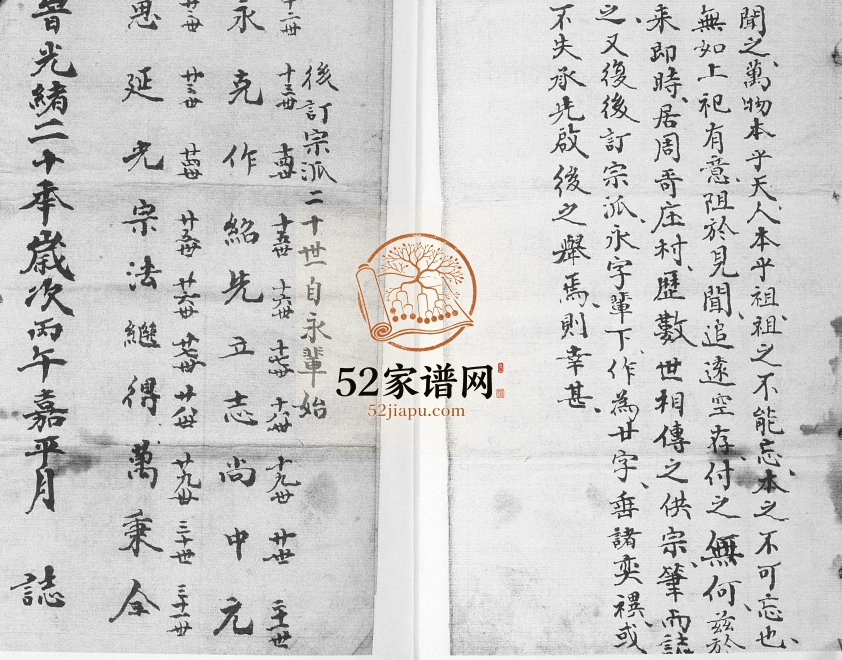 聞之萬物本乎天人本乎祖祖之不能忘本之不可忘也
無如上祀有意阻於見聞追遠空存付之無何茲於
乘即時居周哥庄村歷數世相傳之供宗筆而誌
之又復後訂宗派永字輩下作為廿字垂諸奕禩或
不失承先啟後之舉焉則幸甚
後訂宗派二十世自永輩始
十二世 十三世 十四世 十五世 十六世 十七世 十八世 十九世 廿世 二十一世
永克作紹先立志尚中元
廿二世 廿三世 廿四世 廿五世 廿六世 廿七世 廿八世 廿九世 三十世 三十一世
思延光宗法繼得萬秉全
光緒二十年歲次丙午嘉平月 誌
52家谱网
52jiapu.com